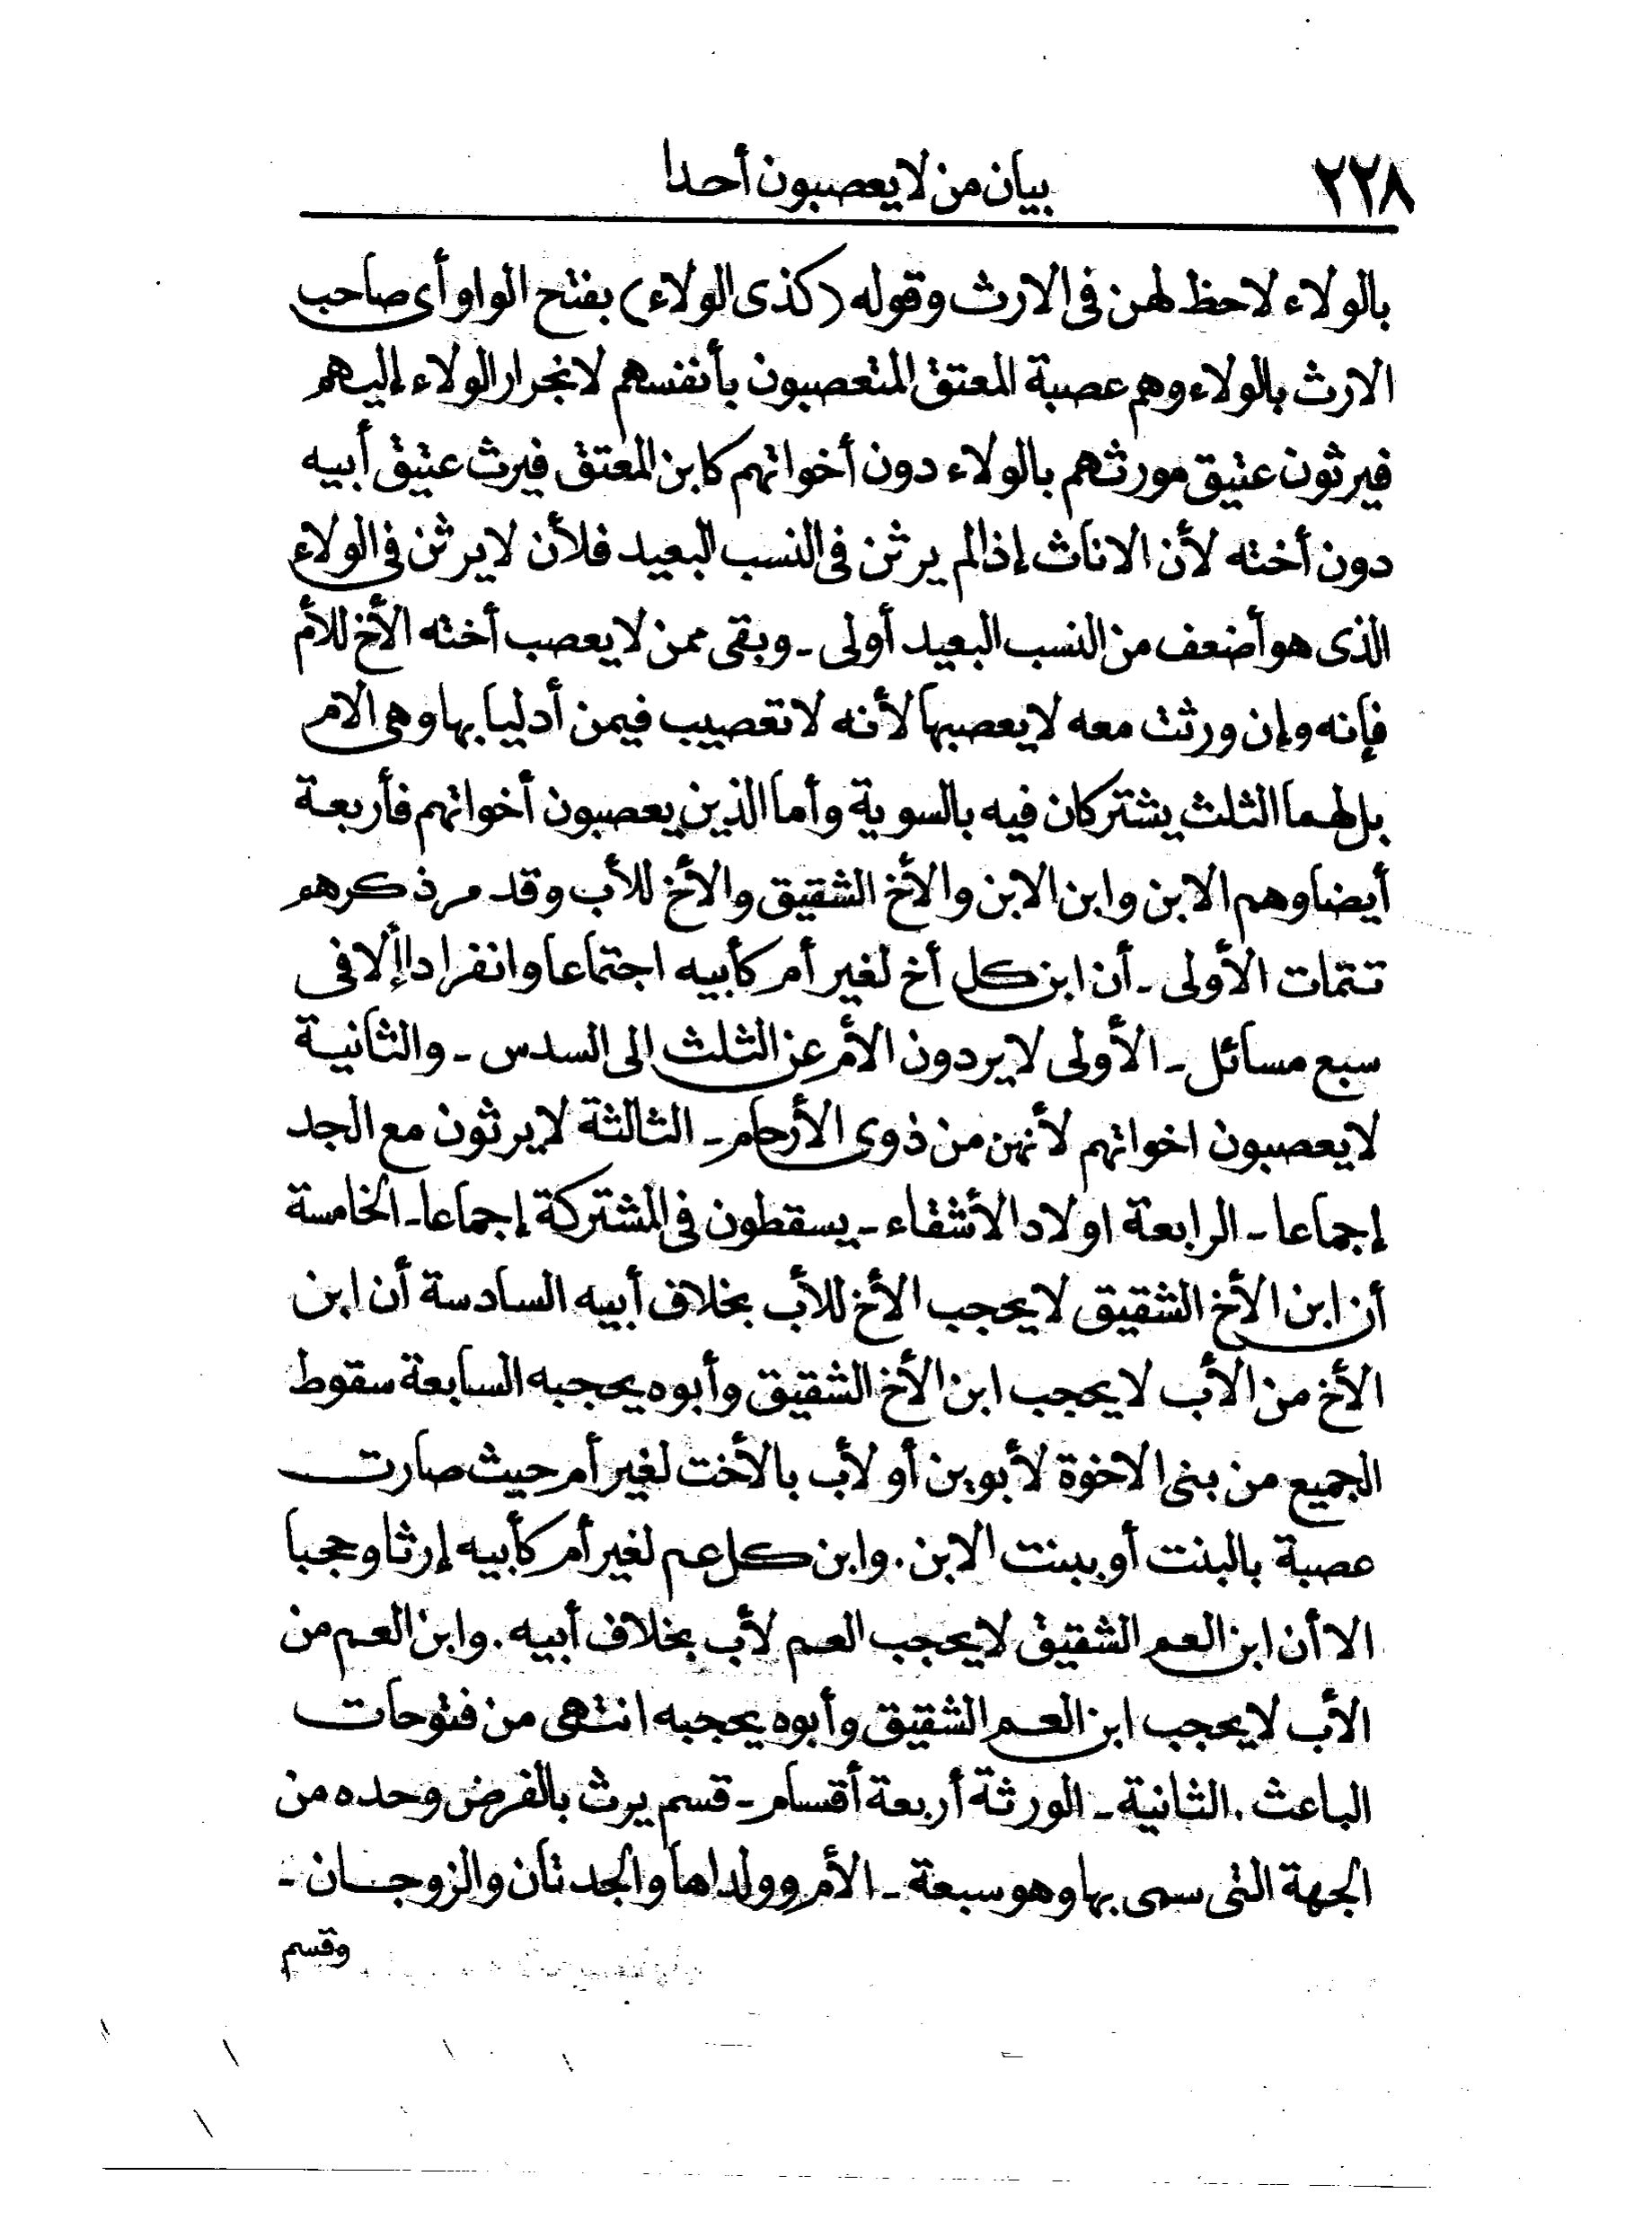 ٢٢٨
بيان من لا يعصبون أحدا
بالولاء لا حظ لهن فى الارث وقوله (كذى الولاء) بفتح الواو أى صاحب
الارث بالولاء وهم عصبة المعتق المتعصبون بأنفسهم لانجرار الولاء إليهم
فيرثون عتيق مورثهم بالولاء دون أخواتهم كابن المعتق فيرث عتيق أبيه
دون أخته لأن الاناث إذا لم يرثن فى النسب البعيد فلأن لا يرثن فى الولاء
الذى هو أضعف من النسب البعيد أولى - وبقى ممن لا يعصب أخته الأخ للأم
فإنه وإن ورثت معه لا يعصبها لأنه لا تعصيب فيمن أدليا بها وهى الام
بل لهما الثلث يشتركان فيه بالسوية وأما الذين يعصبون أخواتهم فأربعة
أيضا وهم الابن وابن الابن والأخ الشقيق والأخ للأب وقد مر ذكرهم
تتمات الأولى - أن ابن كل أخ لغير أم كأبيه اجتماعا وانفرادا إلا فى
سبع مسائل - الأولى لا يردون الأم عن الثلث الى السدس - والثانية
لا يعصبون اخواتهم لأنهن من ذوى الأرحام - الثالثة لا يرثون مع الجد
إجماعا - الرابعة اولاد الأشقاء - يسقطون فى المشتركة إجماعا - الخامسة
أن ابن الأخ الشقيق لا يحجب الأخ للأب بخلاف أبيه السادسة أن ابن
الأخ من الأب لا يحجب ابن الأخ الشقيق وأبوه يحجبه السابعة سقوط
الجميع من بنى الاخوة لأبوين أو لأب بالأخت لغير أم حيث صارت
عصبة بالبنت أو ببنت الابن. وابن كل عم لغير أم كأبيه إرثا وحجبا
الا أن ابن العم الشقيق لا يحجب العم لأب بخلاف أبيه. وابن العم من
الأب لا يحجب ابن العم الشقيق وأبوه يحجبه انتهى من فتوحات
الباعث. الثانية - الورثة أربعة أقسام - قسم يرث بالفرض وحده من
الجهة التى سمى بها وهو سبعة - الأم وولداها والجدتان والزوجان -
وقسم